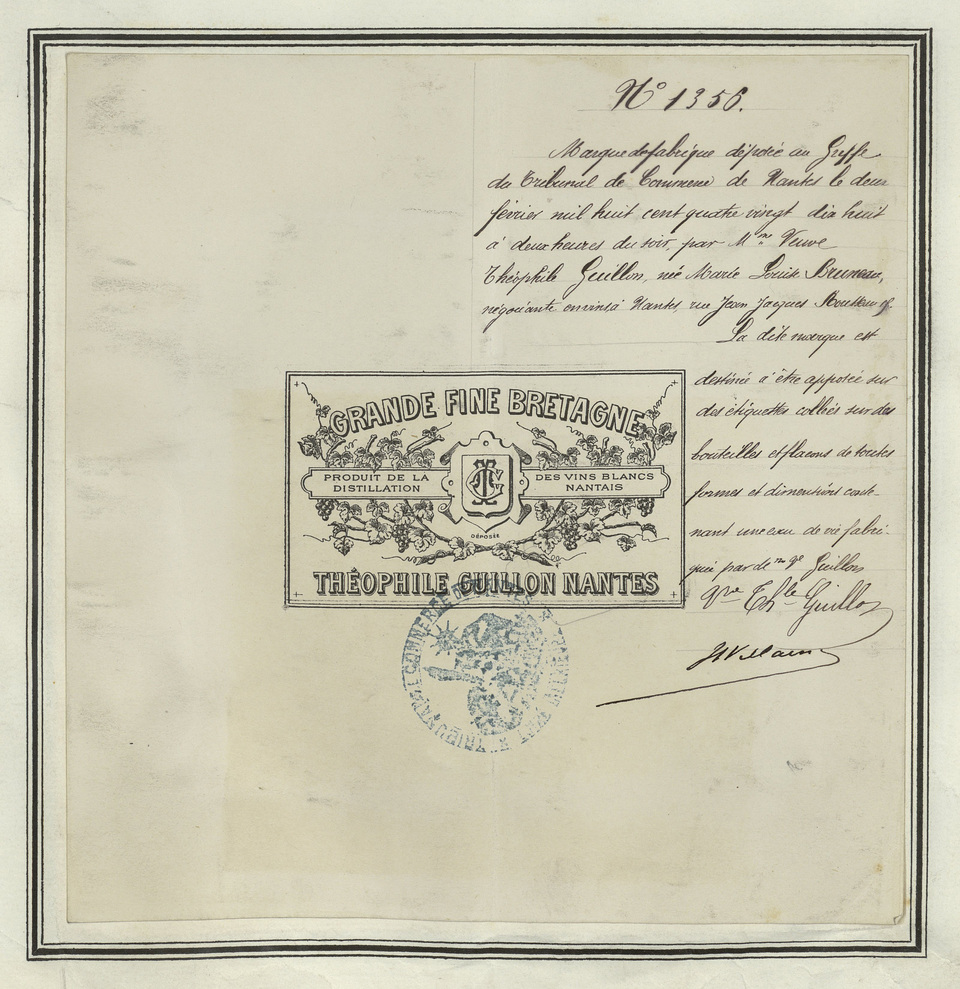 N° 1356.
Marque de fabrique déposée au Greffe
du Tribunal de Commerce de Nantes le deux
février mil huit cent quatre vingt dix huit
à deux heures du soir, par Mme Veuve
Théophile Guillon, née Marie Louise Bruneau,
négociante en vins à Nantes, rue Jean Jacques Rousseau
La dite marque est
destinée à être apposée sur
des étiquettes collées sur des
bouteilles et flacons de toutes
formes et dimensions conte-
nant une eau de vie fabri-
quée par de me Guillon
Vve Thle Guillon
GRANDE FINE BRETAGNE
PRODUIT DE LA
DISTILLATION
DES VINS BLANCS
NANTAIS
DÉPOSÉE
THÉOPHILE GUILLON NANTES
TRIBUNAL DE COMMERCE DE NANTES